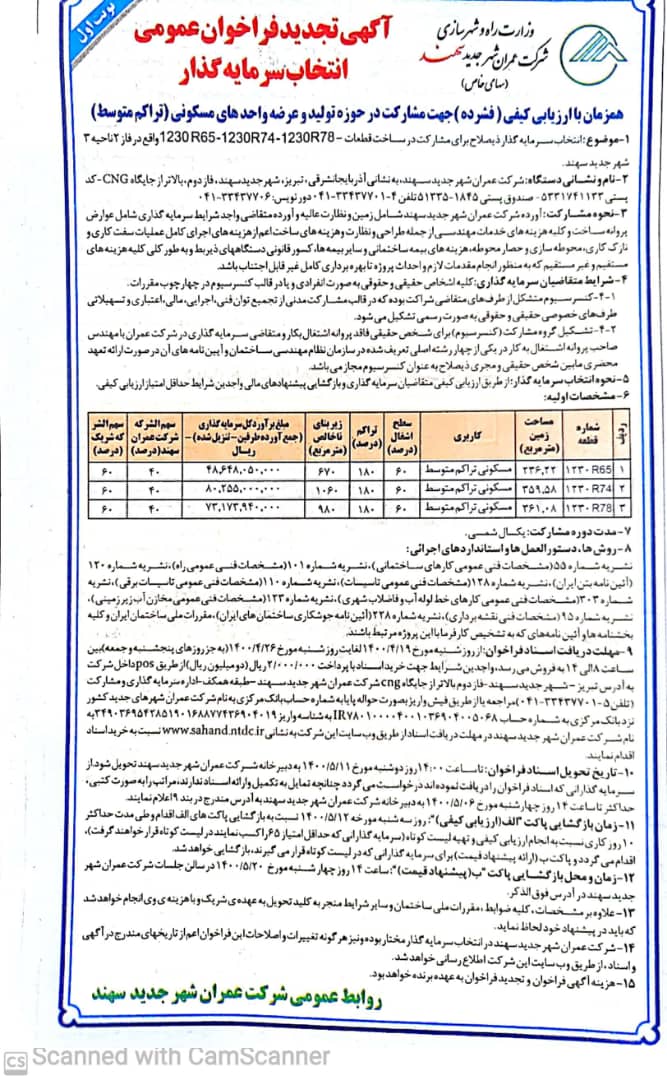 نوبت اول
وزارت راه و شهرسازی
شرکت عمران شهر جدید سهند
(سهامی خاص)
آگهی تجدید فراخوان عمومی
انتخاب سرمایه گذار
همزمان با ارزیابی کیفی (فشرده) جهت مشارکت در حوزه تولید و عرضه واحدهای مسکونی (تراکم متوسط)
۱-موضوع: انتخاب سرمایه گذار ذیصلاح برای مشارکت در ساخت قطعات – 1230R65-1230R74-1230R78 واقع در فاز ۲ ناحیه ۳
شهر جدید سهند.
۲-نام و نشانی دستگاه: شرکت عمران شهر جدید سهند، به نشانی آذربایجانشرقی، تبریز، شهر جدید سهند، فاز دوم، بالاتر از جایگاه CNG-کد
پستی ۵۳۳۱۷۴۱۱۳۳- صندوق پستی ۱۸۴۵-۵۱۳۳۵ تلفن ۴-۳۳۴۳۷۷۰۱-۰۴۱ دورنویس: ۳۳۴۳۷۷۰۶-۰۴۱
۳-نحوه مشارکت: آورده شرکت عمران شهر جدید سهند شامل زمین و نظارت عالیه و آورده متقاضی واجد شرایط سرمایه گذاری شامل عوارض
پروانه ساخت و کلیه هزینه های خدمات مهندسی از جمله طراحی و نظارت و هزینه های ساخت اعم از هزینه های اجرای کامل عملیات سفت کاری و
نازک کاری، محوطه سازی و حصار محوطه، هزینه های بیمه ساختمانی و سایر بیمه ها، کسور قانونی دستگاههای ذیربط و به طور کلی کلیه هزینه های
مستقیم و غیر مستقیم که به منظور انجام مقدمات لازم و احداث پروژه تا بهره برداری کامل غیر قابل اجتناب باشد.
۴- شرایط متقاضیان سرمایه گذاری: کلیه اشخاص حقیقی و حقوقی به صورت انفرادی و یا در قالب کنسرسیوم در چهارچوب مقررات.
۴-۱- کنسرسیوم متشکل از طرف های متقاضی شراکت بوده که در قالب مشارکت مدنی از تجمیع توان فنی، اجرایی، مالی، اعتباری و تسهیلاتی
طرف های خصوصی حقیقی و حقوقی به صورت رسمی تشکیل می شود.
۴-۲- تشکیل گروه مشارکت (کنسرسیوم) برای شخص حقیقی فاقد پروانه اشتغال بکار و متقاضی سرمایه گذاری در شرکت عمران با مهندس
صاحب پروانه اشتغال به کار در یکی از چهار رشته اصلی تعریف شده در سازمان نظام مهندسی ساختمان و آیین نامه های آن در صورت ارائه تعهد
محضری مابین شخص حقیقی و مجری ذیصلاح به عنوان کنسرسیوم مجاز می باشد.
۵-نحوه انتخاب سرمایه گذار: از طریق ارزیابی کیفی متقاضیان سرمایه گذاری و بازگشایی پیشنهادهای مالی واجدین شرایط حداقل امتیاز ارزیابی کیفی.
۶-مشخصات اولیه:
ردیف | شماره قطعه | مساحت زمین (مترمربع) | کاربری | سطح اشغال (درصد) | تراکم (درصد) | زیربنای ناخالص (مترمربع) | مبلغ برآورد کل سرمایه گذاری (جمع آورده طرفین-تنزیل شده-) ریال | سهم الشرکه شرکت عمران سهند (درصد) | سهم الشرکه شریک (درصد)
۱ | ۱۲۳۰R65 | ۲۳۶,۲۲ | مسکونی تراکم متوسط | ۶۰ | ۱۸۰ | ۶۷۰ | ۴۸,۶۴۸,۰۵۰,۰۰۰ | ۴۰ | ۶۰
۲ | ۱۲۳۰R74 | ۳۵۹,۵۸ | مسکونی تراکم متوسط | ۶۰ | ۱۸۰ | ۱۰۶۰ | ۸۰,۲۵۵,۰۰۰,۰۰۰ | ۴۰ | ۶۰
۳ | ۱۲۳۰R78 | ۳۶۱,۰۸ | مسکونی تراکم متوسط | ۶۰ | ۱۸۰ | ۹۸۰ | ۷۳,۱۷۳,۹۴۰,۰۰۰ | ۴۰ | ۶۰
۷- مدت دوره مشارکت: یکسال شمسی.
۸- روش ها، دستورالعمل ها و استانداردهای اجرائی:
نشریه شماره ۵۵ (مشخصات فنی عمومی کارهای ساختمانی)، نشریه شماره ۱۰۱ (مشخصات فنی عمومی راه)، نشریه شماره ۱۲۰
(آئین نامه بتن ایران)، نشریه شماره ۱۲۸ (مشخصات فنی عمومی تاسیسات)، نشریه شماره ۱۱۰ (مشخصات فنی عمومی تاسیسات برقی)، نشریه
شماره ۳۰۳ (مشخصات فنی عمومی کارهای خط لوله آب و فاضلاب شهری)، نشریه شماره ۱۲۳ (مشخصات فنی عمومی مخازن آب زیرزمینی)،
نشریه شماره ۹۵ (مشخصات فنی نقشه برداری)، نشریه شماره ۲۲۸ (آئین نامه جوشکاری ساختمان های ایران)، مقررات ملی ساختمان ایران و کلیه
بخشنامه ها و آئین نامه های که به تشخیص کارفرما با این پروژه مرتبط باشند.
۹-مهلت دریافت اسناد فراخوان: از روز شنبه مورخ ۱۴۰۰/۴/۱۹ لغایت روز شنبه مورخ ۱۴۰۰/۴/۲۶ (به جز روزهای پنجشنبه و جمعه) بین
ساعت ۸ الی ۱۴ به فروش می رسد، واجدین شرایط جهت خرید اسناد با پرداخت ۲/۰۰۰/۰۰۰ ریال (دو میلیون ریال) از طریق pos داخل شرکت
به آدرس تبریز - شهر جدید سهند-فاز دوم بالاتر از جایگاه cng شرکت عمران شهر جدید سهند- طبقه همکف-اداره سرمایه گذاری و مشارکت
(تلفن ۵-۳۳۴۳۷۷۰۱-۰۴۱) مراجعه یا از طریق فیش واریز بصورت حواله پایا به شماره حساب بانک مرکزی به نام شرکت عمران شهرهای جدید کشور
نزد بانک مرکزی به شماره حساب IR۷۸۰۱۰۰۰۰۴۰۰۱۰۳۶۹۰۴۰۰۵۰۶۸ به شناسه واریز ۳۴۹۰۳۶۹۵۴۳۸۵۱۹۰۱۶۸۸۷۷۴۳۶۹۰۴۰۱۹ به
نام شرکت عمران شهر جدید سهند در مهلت دریافت اسناد از طریق وب سایت این شرکت به نشانی www.sahand.ntdc.ir نسبت به خرید اسناد
اقدام نمایند.
۱۰- تاریخ تحویل اسناد فراخوان: تا ساعت ۱۴:۰۰ روز دوشنبه مورخ ۱۴۰۰/۵/۱۱ به دبیرخانه شرکت عمران شهر جدید سهند تحویل شود. از
سرمایه گذارانی که اسناد فراخوان را دریافت نموده اند درخواست می گردد چنانچه تمایل به تکمیل و ارائه اسناد ندارند، مراتب را به صورت کتبی،
حداکثر تا ساعت ۱۴ روز چهارشنبه مورخ ۱۴۰۰/۵/۰۶ به دبیرخانه شرکت عمران شهر جدید سهند به آدرس مندرج در بند ۹ اعلام نمایند.
۱۱-زمان بازگشایی پاکت "الف (ارزیابی کیفی)": روز سه شنبه مورخه ۱۴۰۰/۵/۱۲ نسبت به بازگشایی پاکت های الف اقدام و طی مدت حداکثر
۱۰ روز کاری نسبت به انجام ارزیابی کیفی و تهیه لیست کوتاه (سرمایه گذارانی که حداقل امتیاز ۶۵ را کسب نمایند در لیست کوتاه قرار خواهند گرفت)،
اقدام می گردد و پاکت ب (ارائه پیشنهاد قیمت) برای سرمایه گذارانی که در لیست کوتاه قرار می گیرند، بازگشایی خواهد شد.
۱۲-زمان و محل بازگشایی پاکت "ب (پیشنهاد قیمت)": ساعت ۱۴ روز چهارشنبه مورخ ۱۴۰۰/۵/۲۰ در سالن جلسات شرکت عمران شهر
جدید سهند در آدرس فوق الذکر.
۱۳-علاوه بر مشخصات، کلیه ضوابط، مقررات ملی ساختمان و سایر شرایط منجر به کلید تحویل به عهده ی شریک و با هزینه ی وی انجام خواهد شد
که باید در پیشنهاد خود لحاظ نماید.
۱۴-شرکت عمران شهر جدید سهند در انتخاب سرمایه گذار مختار بوده و نیز هر گونه تغییرات و اصلاحات این فراخوان اعم از تاریخهای مندرج در آگهی
و اسناد، از طریق وب سایت این شرکت اطلاع رسانی خواهد شد.
۱۵-هزینه آگهی فراخوان و تجدید فراخوان به عهده برنده خواهد بود.
روابط عمومی شرکت عمران شهر جدید سهند
CS Scanned with CamScanner